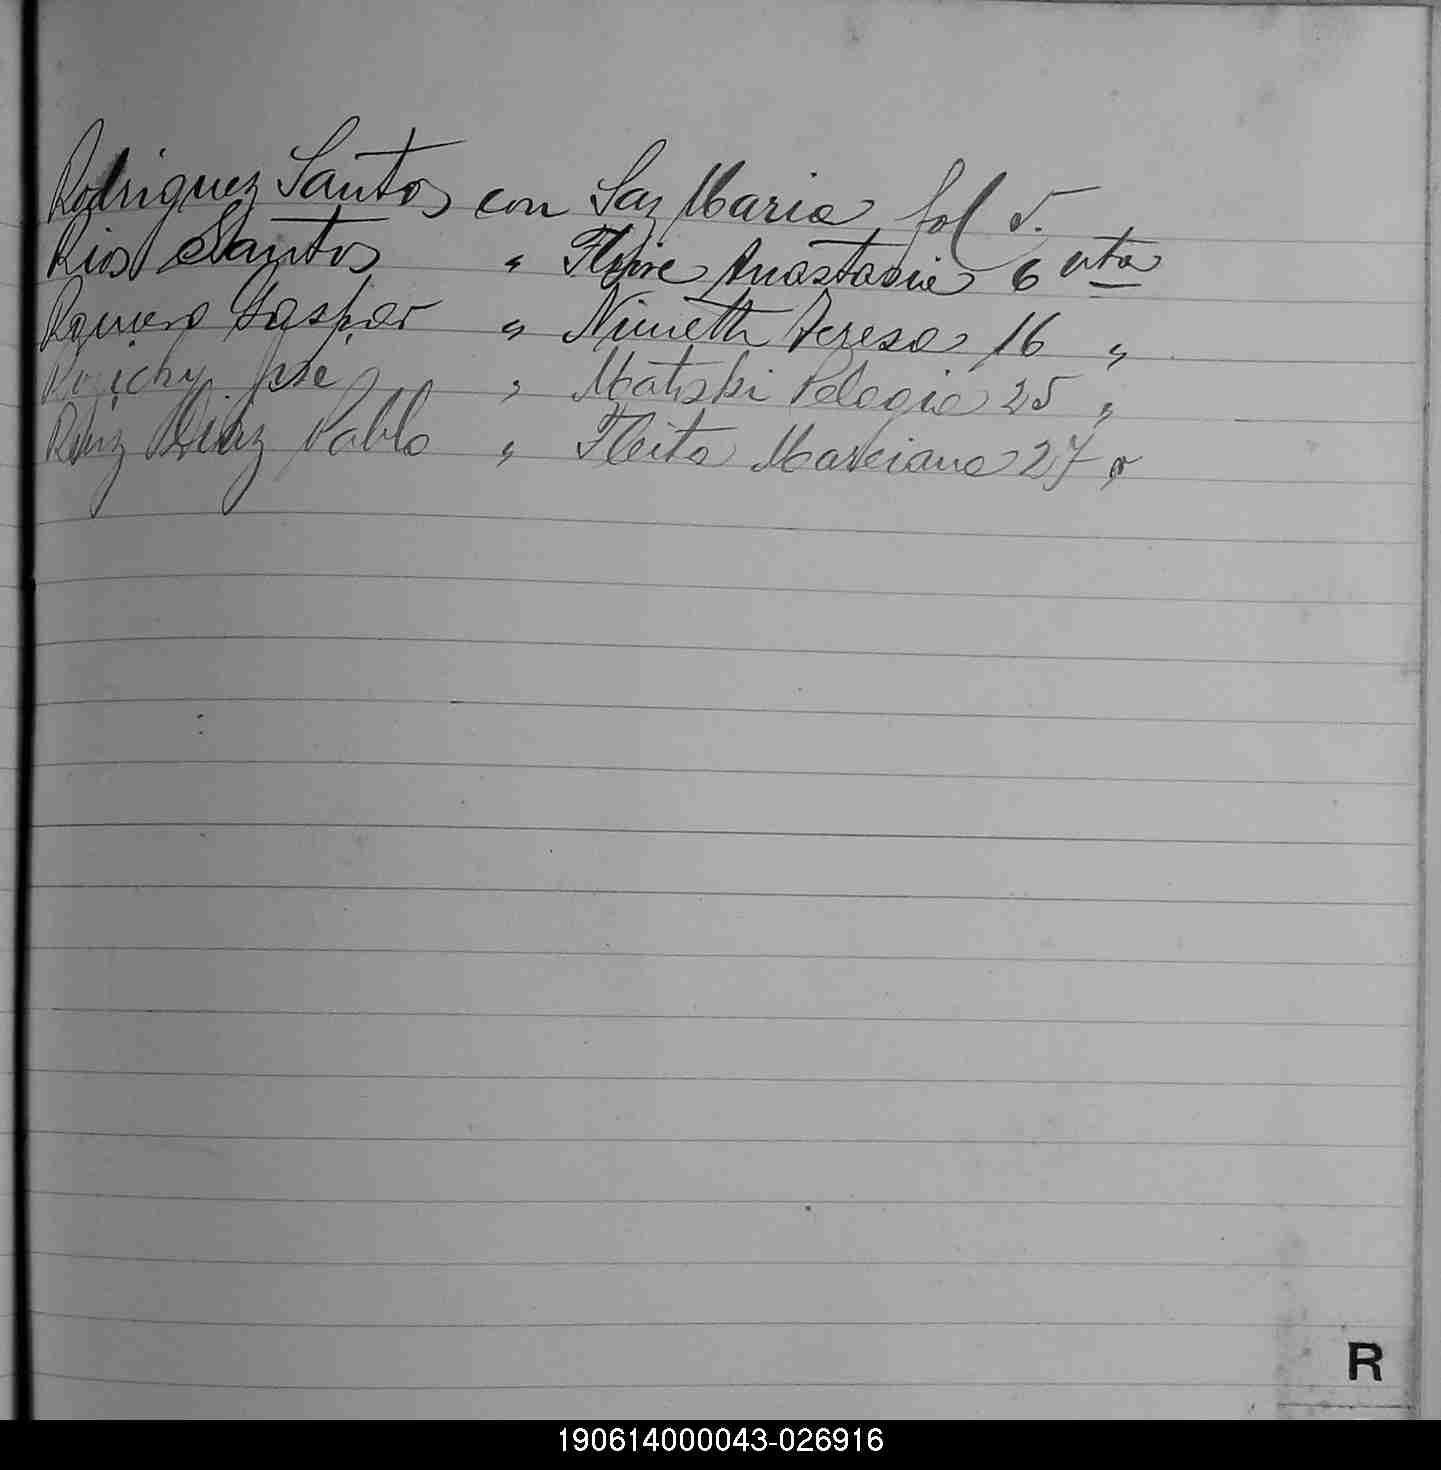 Rodriguez Santos con Saz Maria fol 5.
Rios Santos " Anastasia 6 vta
Romero Gaspar " Nimeth Teresa 16 "
José " Matiski Pelagia 25 "
Ruiz Diaz Pablo " Fleita Marciana 27 "
R
190614000043-026916